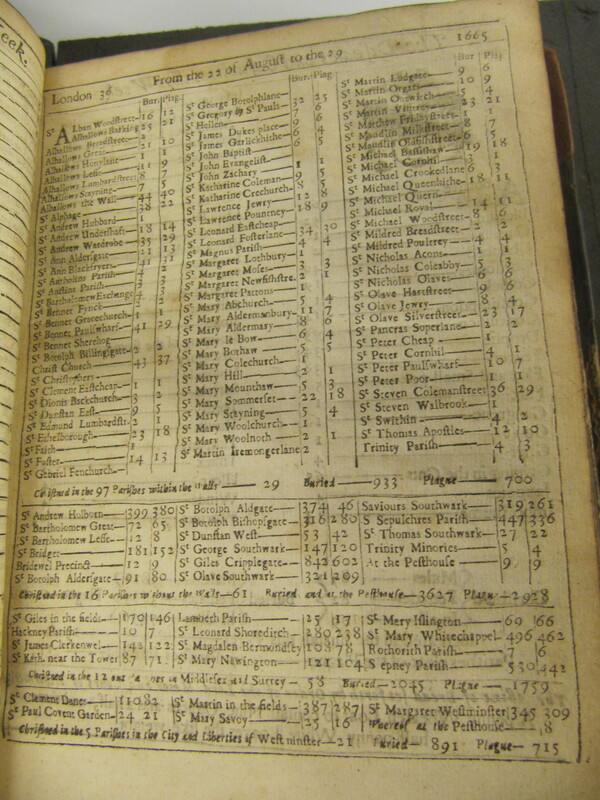 eek.
London 36 From the 22 of August to the 29 1665
Bur. Plag.
St Alban Woodstreet— 16 12
Alhallows Barking— 25 21
Alhallows Breadstreet— 2 1
Alhallows Great— 21 10
Alhallows Honylane—
Alhallows Lesse— 11 9
Alhallows Lumbardstreet 8 7
Alhallows Stayning— 7 5
Alhallows the Wall— 44 40
St Alphage— 38 22
St Andrew Hubbard— 1
St Andrew Undershaft— 18 14
St Andrew Wardrobe— 35 29
St Ann Aldersgate— 21 13
St Ann Blackfryers— 41 31
St Antholins Parish—
St Austins Parish—
St Bartholomew Exchange
St Bennet Fynck—
St Bennet Gracechurch—
St Bennet Paulswharf— 41 29
St Bennet Sherehog
St Botolph Billingsgate— 2
Christ Church— 43 37
St Christophers—
St Clement Eastcheap— 1 1
St Dionis Backchurch— 3 2
St Dunstan East— 9 5
St Edmund Lumbardstr. 2 1
St Ethelborough— 23 18
St Faith— 1
St Foster— 14 13
St Gabriel Fenchurch—
Bur. Plag
St George Botolphlane—
St Gregory by St Pauls— 32 25
St Hellen— 7 6
St James Dukes place— 9 6
St James Garlickhithe— 6 4
St John Baptist— 6 5
St John Evangelist—
St John Zachary— 1 1
St Katharine Coleman— 9 5
St Katharine Crechurch— 8 5
St Lawrence Jewry— 12 8
St Lawrence Pountney— 18 9
St Leonard Eastcheap—
St Leonard Fosterlane— 34 30
St Magnus Parish— 4 4
St Margaret Lothbury— 1 1
St Margaret Moses— 3 3
St Margaret Newfishstre. 2 1
St Margaret Pattons— 1
St Mary Abchurch— 5 4
St Mary Aldermanbury— 11 7
St Mary Aldermary— 8 6
St Mary le Bow— 6 4
St Mary Bothaw— 5 5
St Mary Colechurch— 1
St Mary Hill— 2 1
St Mary Mounthaw— 5 3
St Mary Sommerset— 22 18
St Mary Stayning— 5 4
St Mary Woolchurch— 1
St Mary Woolnoth— 2 1
St Martin Iremongerlane 2
Bur Plag
St Martin Ludgate— 9 6
St Martin Orgars— 10 9
St Martin Outwitch— 5 4
St Martin Vintrey— 23 21
St Matthew Fridaystreet— 1
St Maudlin Milkstreet— 8 7
St Maudlin Oldfishstreet— 6 5
St Michael Bassishaw— 19 18
St Michael Cornhil— 3 1
St Michael Crookedlane 6 3
St Michael Queenhithe— 18 11
St Michael Quern—
St Michael Royal— 14 11
St Michael Woodstreet— 8 6
St Mildred Breadstreet— 2 2
St Mildred Poultrey— 4 4
St Nicholas Acons— 1
St Nicholas Coleabby— 5 3
St Nicholas Olaves— 6 6
St Olave Hartstreet— 9 6
St Olave Jewry— 8 4
St Olave Silverstreet— 23 17
St Pancras Soperlane— 2 2
St Peter Cheap— 1
St Peter Cornhil— 4 1
St Peter Paulswharf— 10 7
St Peter Poor— 1 1
St Steven Colemanstreet 36 29
St Steven Walbrook— 1
St Swithin— 4 2
St Thomas Apostles— 12 10
Trinity Parish— 4 3
Christned in the 97 Parishes within the Walls— 29 Buried— 933 Plague— 700
St Andrew Holborn— 399 380
St Bartholomew Great— 72 65
St Bartholomew Lesse— 12 8
St Bridget— 181 152
Bridewel Precinct— 12 9
St Botolph Aldersgate— 91 80
St Botolph Aldgate— 374 46
St Botolph Bishopsgate 316 280
St Dunstan West— 53 42
St George Southwark— 147 120
St Giles Cripplegate— 842 602
St Olave Southwark— 321 209
Saviours Southwark— 319 261
S Sepulchres Parish— 447 336
St Thomas Southwark— 27 22
Trinity Minories— 5 4
At the Pesthouse— 9 9
Christned in the 16 Parishes without the Walls— 61 Buried, and at the Pesthouse— 3627 Plague— 2928
St Giles in the fields— 170 146
Hackney Parish— 10 7
St James Clerkenwel— 142 122
St Kath. near the Tower 87 71
Lambeth Parish— 25 17
St Leonard Shoreditch— 280 238
St Magdalen Bermondsey 108 78
St Mary Newington— 121 104
St Mary Islington— 69 66
St Mary Whitechappel 496 462
Rothorith Parish— 7 6
Stepney Parish— 530 442
Christned in the 12 out Parishes in Middlesex and Surrey— 58 Buried— 2045 Plague— 1759
St Clement Danes— 110 82
St Paul Covent Garden— 24 21
St Martin in the fields— 387 287
St Mary Savoy— 25 16
St Margaret Westminster 345 309
Whereof at the Pesthouse— 8
Christned in the 5 Parishes in the City and Liberties of Westminster— 21 Buried— 891 Plague— 715